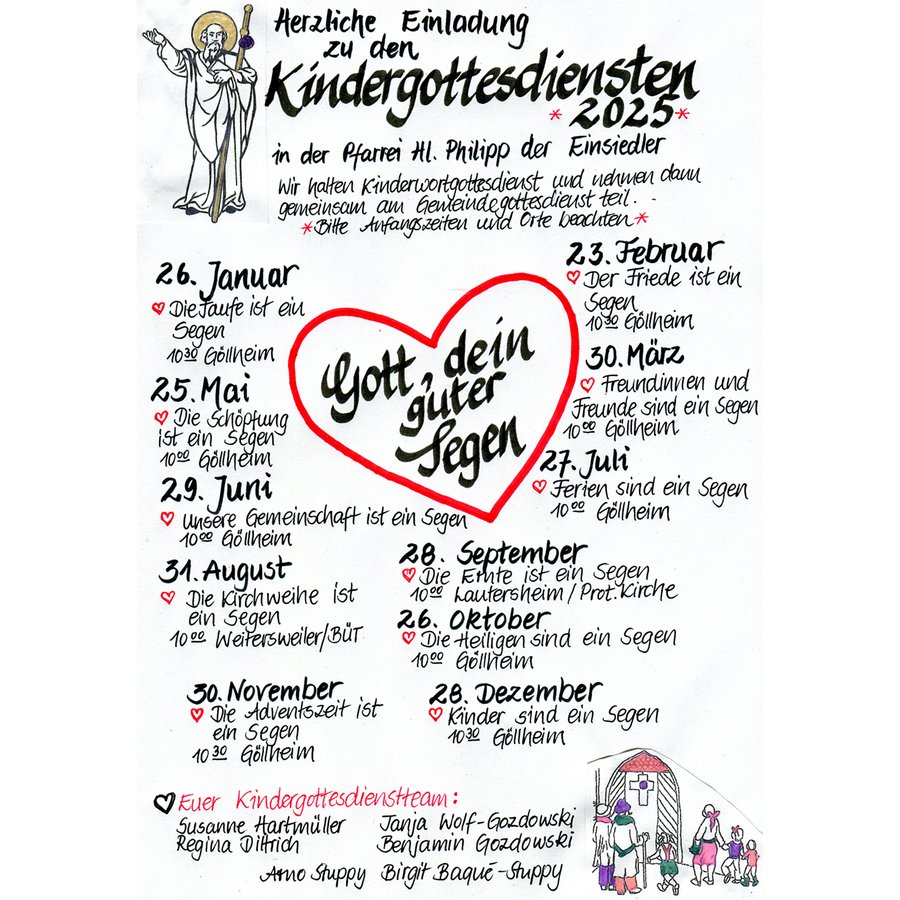 Herzliche Einladung
zu den
Kindergottesdiensten
* 2025 *
in der Pfarrei Hl. Philipp der Einsiedler
Wir halten Kinderwortgottesdienst und nehmen dann
gemeinsam am Gemeindegottesdienst teil. . .
* Bitte Anfangszeiten und Orte beachten *
26. Januar
♡ Die Taufe ist ein
Segen
10³⁰ Göllheim
23. Februar
♡ Der Friede ist ein
Segen
10³⁰ Göllheim
30. März
♡ Freundinnen und
Freunde sind ein Segen
10⁰⁰ Göllheim
Gott, dein
guter
Segen
25. Mai
♡ Die Schöpfung
ist ein Segen
10⁰⁰ Göllheim
29. Juni
♡ Unsere Gemeinschaft ist ein Segen
10⁰⁰ Göllheim
27. Juli
♡ Ferien sind ein Segen
10⁰⁰ Göllheim
31. August
♡ Die Kirchweihe ist
ein Segen
10⁰⁰ Weitersweiler/BÜT
28. September
♡ Die Ernte ist ein Segen
10⁰⁰ Lautersheim/Prot. Kirche
26. Oktober
♡ Die Heiligen sind ein Segen
10⁰⁰ Göllheim
30. November
♡ Die Adventszeit ist
ein Segen
10³⁰ Göllheim
28. Dezember
♡ Kinder sind ein Segen
10³⁰ Göllheim
♡ Euer Kindergottesdienstteam:
Susanne Hartmüller Tanja Wolf-Gozdowski
Regina Dittrich Benjamin Gozdowski
Arno Stuppy Birgit Baqué-Stuppy